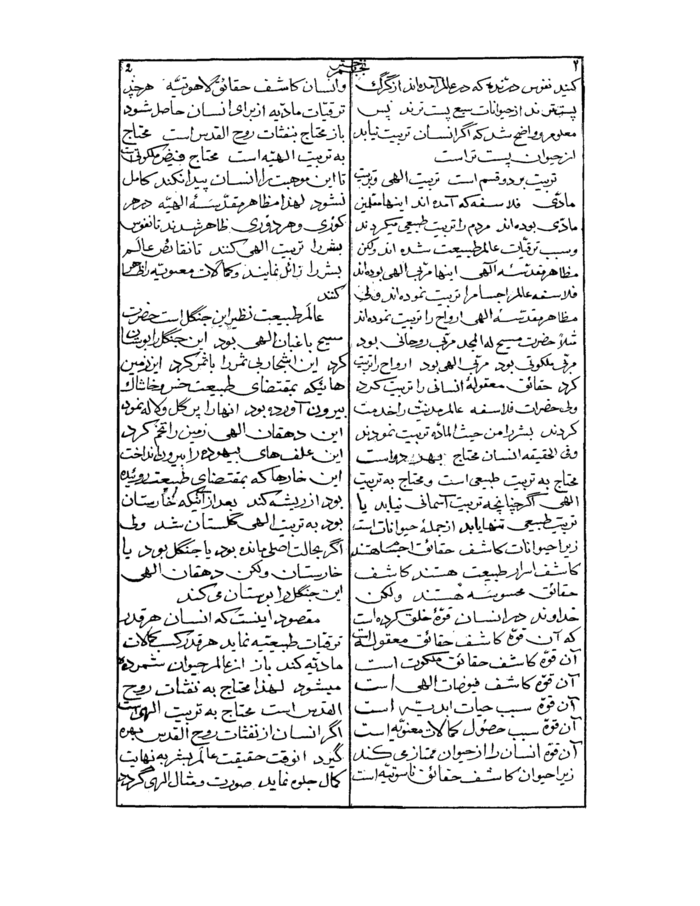 ۲
نجم باختر
2
کنید نفوس درنده که در عالم آمده اند از گرگ
پست ترند از حیوانات سبع پست ترند پس
معلوم و واضح شد که اگر انسان تربیت نیابد
از حیوان پست تر است
تربیت بر دو قسم است تربیت الهی و تربیت
مادی فلاسفه که آمده اند اینها معلمین
مادی بوده اند مردم را تربیت طبیعی میکردند
و سبب ترقیات عالم طبیعت شده اند ولکن
مظاهر مقدسه الهی اینها مربی الهی بوده اند
فلاسفه عالم اجسام را تربیت نموده اند ولی
مظاهر مقدسه الهی ارواح را تربیت نموده اند
مثلا حضرت مسیح له المجد مربی روحانی بود
مربی ملکوتی بود مربی الهی بود ارواح را تربیت
کرد حقائق معقولهٔ انسانی را تربیت کرد
ولی حضرات فلاسفه عالم مدنیت را خدمت
کردند بشر را من حیث الماده تربیت نمودند
وفی الحقیقه انسان محتاج بهر دو است
محتاج به تربیت طبیعی است و محتاج به تربیت
الهی اگر چنانچه تربیت آسمانی نیابد یا
تربیت طبیعی تنها یابد از جملهٔ حیوانات است
زیرا حیوانات کاشف حقائق اجسام هستند
کاشف اسرار طبیعت هستند کاشف
حقائق محسوسه هستند ولکن
خداوند در انسان قوهٔ خلق کرده است
که آن قوه کاشف حقائق معقوله است
آن قوه کاشف حقائق ملکوت است
آن قوه کاشف فیوضات الهی است
آن قوه سبب حیات ابدیه است
آن قوه سبب حصول کمالات معنویه است
آن قوه انسان را از حیوان ممتاز می کند
زیرا حیوان کاشف حقائق ناسوتیه است
و انسان کاشف حقائق لاهوتیه هر چند
ترقیات مادیه از برای انسان حاصل شود
باز محتاج بنفثات روح القدس است محتاج
به تربیت الهیه است محتاج فیض ملکوتی است
تا این موهبت را انسان پیدا نکند کامل
نشود لهذا مظاهر مقدسهٔ الهیه در هر
کوری و هر دوری ظاهر شدند تا نفوس
بشر را تربیت الهی کنند تا نقائص عالم
بشر را زائل نمایند و کمالات معنویه را ظاهر
کنند
عالم طبیعت نظیر این جنگل است حضرت
مسیح باغبان الهی بود این جنگل را بوستان
کرد این اشجار بی ثمر را با ثمر کرد این زمین
هائیکه بمقتضای طبیعت خس و خاشاک
بیرون آورده بود انها را پر گل و لاله نمود
این دهقان الهی زمین را تخم کرد
این علف های بیهوده را بیرون انداخت
این خارها که بمقتضای طبیعت روئیده
بود از ریشه کند بعد از آنکه خارستان
بود به تربیت الهی گلستان شد ولی
اگر بحالت اصلی مانده بود یا جنگل بود یا
خارستان ولکن دهقان الهی
این جنگل را بوستان می کند
مقصود اینست که انسان هر قدر
ترقیات طبیعیه نماید هر قدر کسب کمالات
مادیه کند باز از عالم حیوان شمرده
میشود لهذا محتاج به نفثات روح
القدس است محتاج به تربیت الهی است
اگر انسان از نفثات روح القدس بهره
گیرد انوقت حقیقت عالم بشر به نهایت
کمال جلوه نماید صورت و مثال الهی گردد